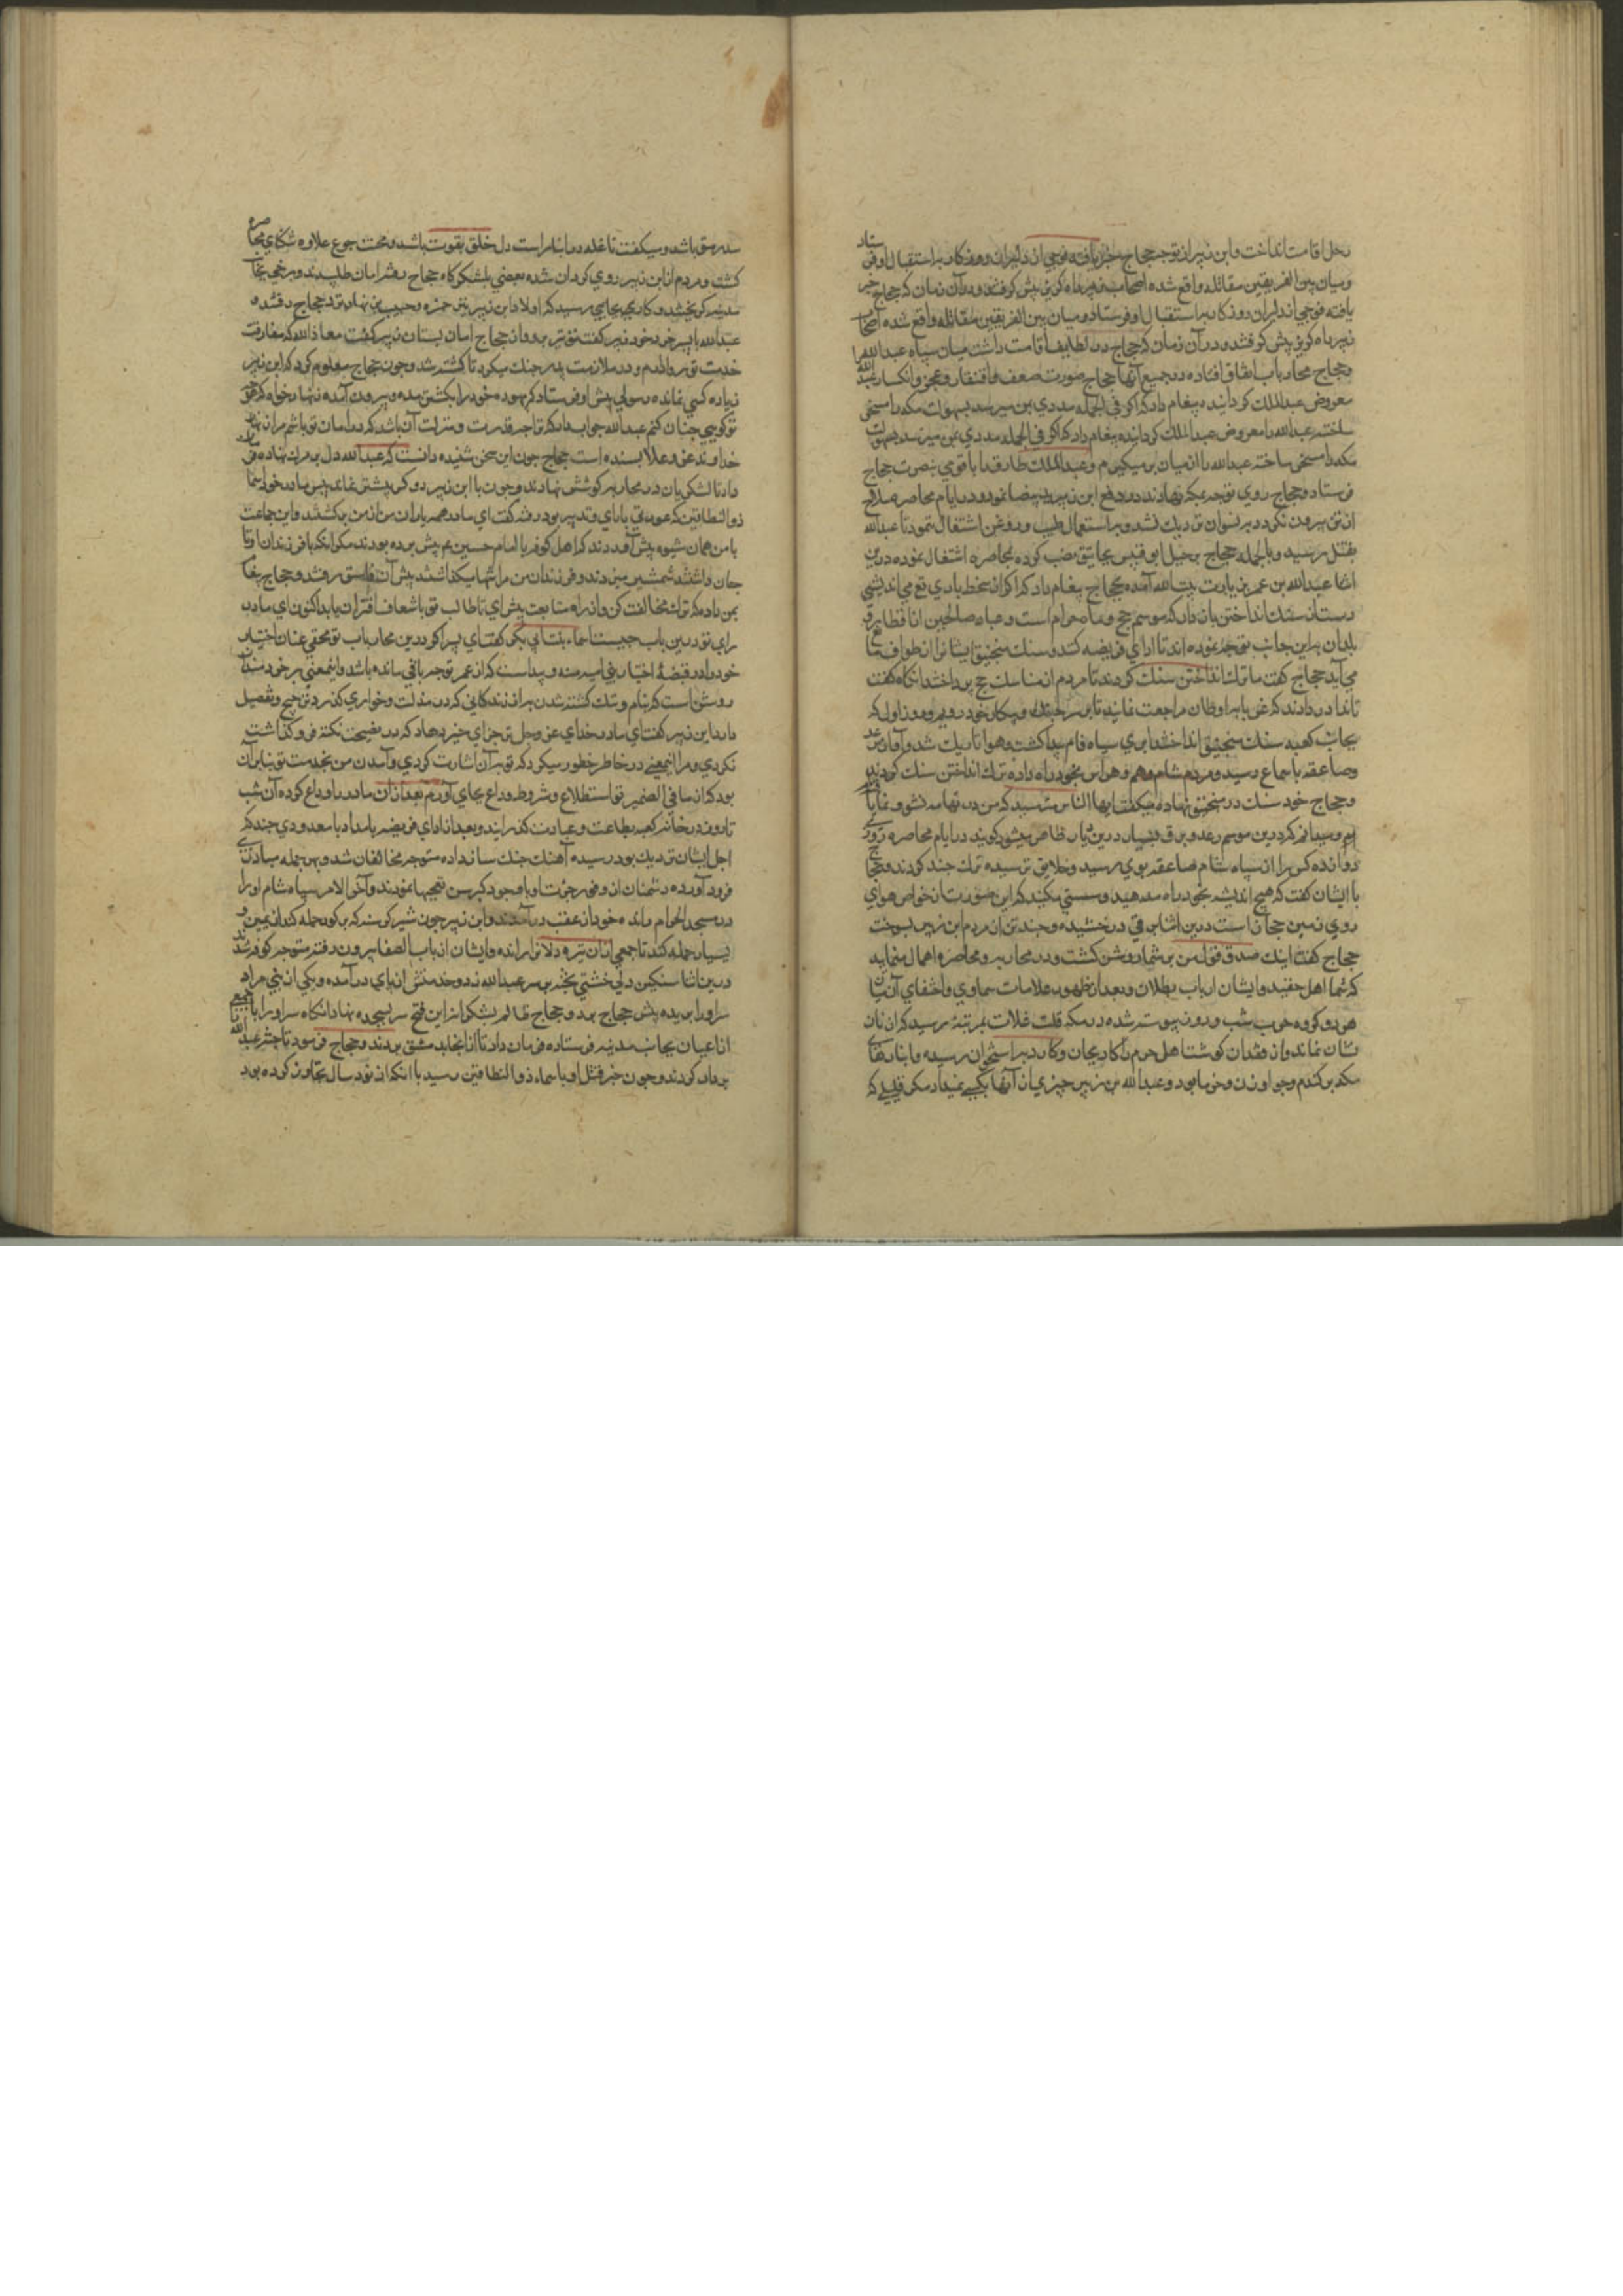 رحل اقامت انداخت و ابن زبیر از توجه حجاج خبر یافته فوجی از دلیران روزکار به استقبال او فرستاد
و میان بین الفریقین مقاتله واقع شده اصحاب زبیر راه کریز پیش کرفتند و در آن زمان که حجاج خبر
یافته فوجی از دلیران روزکار به استقبال او فرستاد و میان بین الفریقین مقاتله واقع شده اصحاب
زبیر راه کریز پیش کرفتند و در آن زمان که حجاج در طایف اقامت داشت میان سپاه عبدالله را
و حجاج محاربات اتفاق افتاده در جمیع آنها حجاج صورت ضعف و افتقار و عجز و انکسار عبدالله
معروض عبدالملک کردانیده پیغام داد که اکر فی الجمله مددی بمن میرسد بسهولت مکه را مسخر
ساخته عبدالله را معروض عبدالملک کردانیده پیغام داد که اکر فی الجمله مددی بمن میرسد بسهولت
مکه را مسخر ساخته عبدالله را از میان بر میکیرم و عبدالملک طارق را با قومی بنصرت حجاج
فرستاد و حجاج روی توجه بمکه نهادند و در دفع ابن زبیر ید بیضا نمود و در ایام محاصره صلاح
از تن بیرون نکرد و به نسوان نزدیک نشد و به استعمال طیب و روغن اشتغال ننمود تا عبدالله
بقتل رسید و بالجمله حجاج بر جبل ابوقبیس مجانیق نصب کرده بمحاصره اشتغال نموده درین
اثنا عبدالله بن عمر بزیارت بیت الله آمده بحجاج پیغام داد که اکر از سخط باری تع می اندیشی
دست از سنک انداختن باز دار که موسم حج و ماه حرام است و عباد صالحین از اقطار و
بلدان براین جانب توجه نموده اند تا ادای فریضه کنند و سنک منجنیق ایشانرا از طواف مانع
می آید حجاج کفت ما ترک انداختن سنک کردیم تا مردم از مناسک حج پرداختند آنکاه کفت
تا ندا در دادند که غربا به اوطان مراجعت نمایند تا بر سر جنک و پیکار خود رویم و روز اول که
بجانب کعبه سنک منجنیق انداختند ابری سیاه فام پیدا کشت و هوا تاریک شد و آواز رعد
و صاعقه باسماع رسید و مردم شام وهم و هراس بخود راه داده ترک انداختن سنک کردند
و حجاج خود سنک در منجنیق نهاده میکفت ایها الناس مترسید که من در تهامه نشو و نما یافته
ام و میدانم که درین موسم رعد و برق بسیار درین دیار ظاهر میشود کویند در ایام محاصره روزی
دوازده کس را از سپاه شام صاعقه بوی رسید و خلایق ترسیده ترک جنک کردند و حجاج
با ایشان کفت که هیچ اندیشه بخود راه مدهید و سستی مکنید که این صورت از خواص هوای
روی زمین حجاز است درین اثنا برقی درخشیده و چند تن از مردم ابن زبیر بسوخت
حجاج کفت اینک صدق قول من بر شما روشن کشت و در محاربه و محاصره اهمال منمایید
که شما اهل حقید و ایشان ارباب بطلان و بعد از ظهور علامات سماوی و اخفای آن
هر دو کروه حرب شب و روز پیوسته شده در مکه قلت غلات بمرتبهٔ رسید که از نان
نشان نماند و از فقدان کوشت اهل حرم را کارد بجان و کار به استخوان رسیده و انبارهای
مکه پر کندم و جو و ارزن و خرما بود و عبدالله بن زبیر چیزی از آنها بکسی نمیداد مکر قدری که
سد رمق باشد و میکفت تا غله در انبار است دل خلق بقوت باشد و محنت جوع علاوه تنکنای محاصره
کشت و مردم از ابن زبیر روی کردان شده بعضی بلشکرکاه حجاج رفته امان طلبیدند و برخی بجانب
مدینه کریختند و کار بجایی رسید که اولاد ابن زبیر حمزه و حبیب بزینهار نزد حجاج رفتند
عبدالله با پسر خود زبیر کفت تو نیز برو و از حجاج امان بستان زبیر کفت معاذ الله که مفارقت
خدمت تو روا دارم و در ملازمت پدر جنک میکرد تا کشته شد و چون حجاج معلوم کرد که ابن زبیر
زیاده کسی نمانده رسولی پیش او فرستاد که بیهوده خود را بکشتن مده و بیرون آمده زنهار خواه که هر چه
تو کویی چنان کنم عبدالله جواب داد که ترا چه قدرت و منزلت آن باشد که در امان تو باشم مرا زنهار
خداوند عز و علا بسنده است حجاج چون این سخن شنیده دانست که عبدالله دل بر مرک نهاده فرمان
داد تا لشکریان در محاربه کوشش نمادند و چون با ابن زبیر دو کس بیشتر نماند پیش مادر خود اسما
ذو النطاقین که عورتی با رای و تدبیر بود رفته کفت ای مادر همه یاران من از من برکشتند و این جماعت
با من همان شیوه پیش آوردند که اهل کوفه با امام حسین عم پیش برده بودند مکر آنکه با فرزندان او تا
جان داشتند شمشیر میزدند و فرزندان من مرا تنها بکذاشتند پیش آن فاسق رفتند و حجاج پیغام
بمن داد که ترک مخالفت کن و از راه متابعت پیش آی تا طالب تو باشعاف اقتران یابد اکنون ای مادر
رای تو درین باب چیست اسماء بنت ابی بکر کفت ای پسر اکر درین محاربات تو محقی عنان اختیار
خود را در قبضهٔ اختیار بنی امیه منه و پیداست که از عمر تو چه باقی مانده باشد و اینمعنی بر خردمندان
روشن است که بنام و ننک کشته شدن به از زندکانی کردن بمذلت و خواری کذرد ترجیح و تفضیل
دارد ابن زبیر کفت ای مادر خدای عز و جل ترا جزای خیر دهاد که در نصیحت نکته فرو کذاشت
نکردی و مرا اینمعنی در خاطر خطور میکرد که تو برآن اشارت کردی و آمدن من بخدمت تو بنابرآن
بود که از ما فی الضمیر تو استطلاع و شروط وداع بجای آورم بعد از آن مادر را وداع کرده آن شب
تا روز در خانه کعبه بطاعت و عبادت کذرانید و بعد از ادای فریضه بامداد با معدودی چند که
اجل ایشان نزدیک بود رسیده آهنک جنک ساز داده متوجه مخالفان شد و بهر حمله مبارزی
فرود آورده دشمنان از وفور جرئت او با وجود کبر سن تعجبها نمودند و آخر الامر سپاه شام او را
در مسجد الحرام رانده خود از عقب درآمدند و ابن زبیر چون شیر کرسنه که بر کور حمله کند از یمین و
یسار حمله کند تا جمعی از آن تیره دلان را رانده و ایشان از باب الصفا بیرون رفته متوجه کوه شدند
درین اثنا سنکین دلی خشتی پخته بر سر عبدالله زد و خدمتش از پای درآمده و یکی از بنی مراد
سر او را بریده پیش حجاج برد و حجاج ظالم بشکرانه این فتح سر بسجده نهاد آنکاه سر او را با جمعی
از اعیان بجانب مدینه فرستاده فرمان داد تا از آنجا بدمشق بردند و حجاج فرمود تا جثه عبدالله را
بر دار کردند و چون خبر قتل او باسماء ذو النطاقین رسید با آنکه از نود سال تجاوز کرده بود